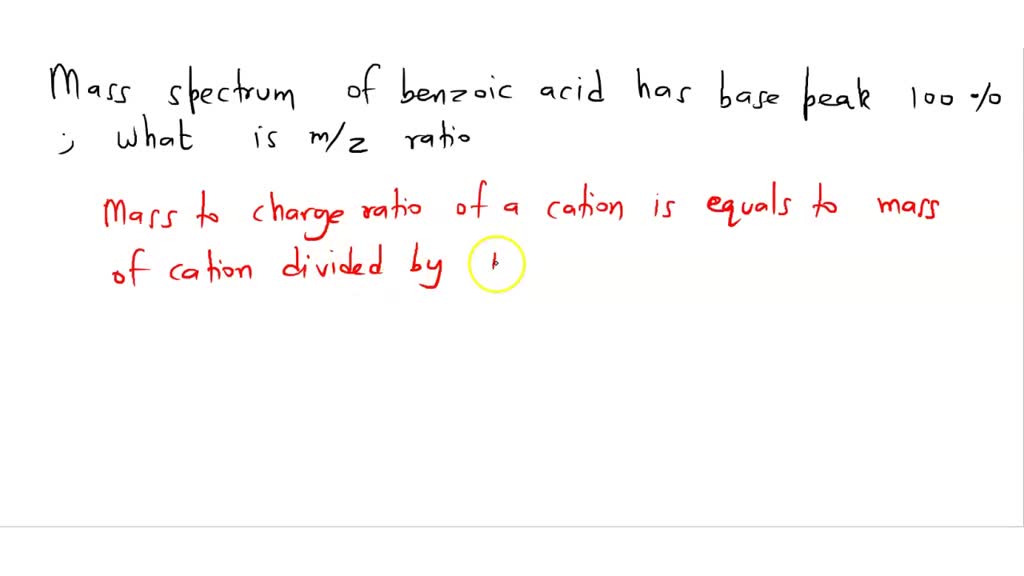 Mass spectrum of benzoic acid has base peak 100 %
; what is m/z ratio
Mass to charge ratio of a cation is equals to mass
of cation divided by